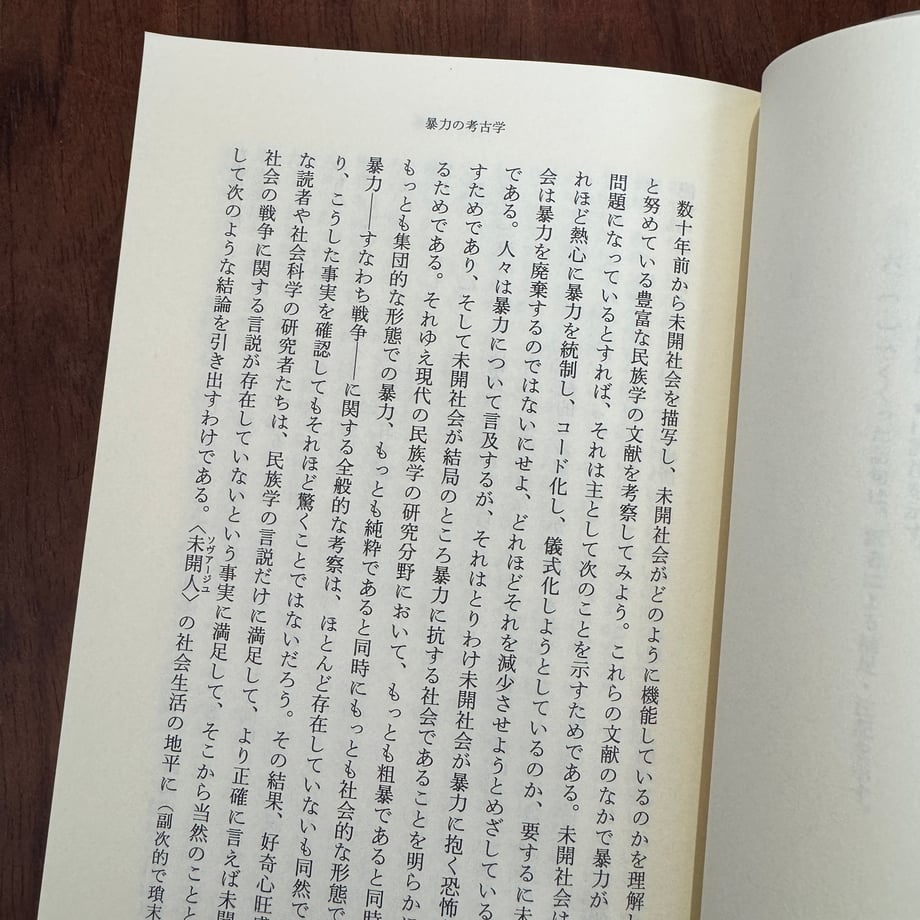 暴力の考古学
数十年前から未開社会を描写し、未開社会がどのように機能しているのかを理解し
と努めている豊富な民族学の文献を考察してみよう。これらの文献のなかで暴力が
問題になっているとすれば、それは主として次のことを示すためである。未開社会は
れほど熱心に暴力を統制し、コード化し、儀式化しようとしているのか、要するに未
会は暴力を廃棄するのではないにせよ、どれほどそれを減少させようとめざしている
である。人々は暴力について言及するが、それはとりわけ未開社会が暴力に抱く恐怖
すためであり、そして未開社会が結局のところ暴力に抗する社会であることを明らか
るためである。それゆえ現代の民族学の研究分野において、もっとも粗暴であると同時
もっとも集団的な形態での暴力、もっとも純粋であると同時にもっとも社会的な形態で
暴力——すなわち戦争——に関する全般的な考察は、ほとんど存在していないも同然で
り、こうした事実を確認してもそれほど驚くことではないだろう。その結果、好奇心旺盛
な読者や社会科学の研究者たちは、民族学の言説だけに満足して、より正確に言えば未開
社会の戦争に関する言説が存在していないという事実に満足して、そこから当然のことと
して次のような結論を引き出すわけである。〈未開人〉ソヴァージュの社会生活の地平に（副次的で瑣末